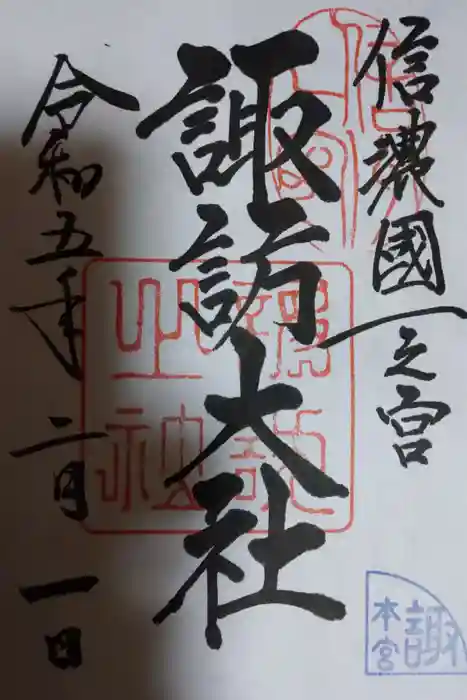 信濃國一之宮
諏訪大社
令和五年二月一日
諏
本宮